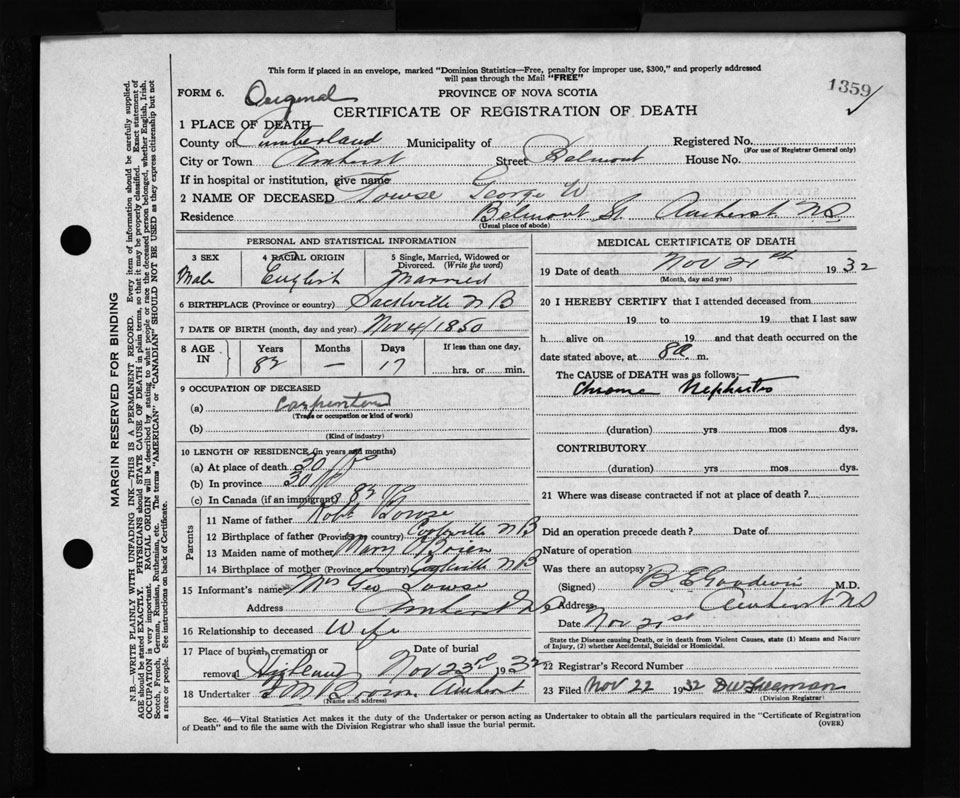 This form if placed in an envelope, marked "Dominion Statistics—Free, penalty for improper use, $300," and properly addressed
will pass through the Mail "FREE"
1359
FORM 6. Original PROVINCE OF NOVA SCOTIA
CERTIFICATE OF REGISTRATION OF DEATH
1 PLACE OF DEATH—
County of Cumberland Municipality of Registered No.
(For use of Registrar General only)
City or Town Amherst Street Belmont House No.
If in hospital or institution, give name
2 NAME OF DECEASED Towse George W
Residence Belmont St. Amherst NS
(Usual place of abode)
PERSONAL AND STATISTICAL INFORMATION
3 SEX 4 RACIAL ORIGIN 5 Single, Married, Widowed or
Divorced. (Write the word)
Male English Married
6 BIRTHPLACE (Province or country) Sackville N B
7 DATE OF BIRTH (month, day and year) Nov 4/1850
8 AGE IN Years Months Days If less than one day,
82 — 17 hrs. or min.
9 OCCUPATION OF DECEASED
(a) Carpenter
(Trade or occupation or kind of work)
(b)
(Kind of industry)
10 LENGTH OF RESIDENCE (in years and months)
(a) At place of death 30 yrs
(b) In province 30
(c) In Canada (if an immigrant) 82
Parents
11 Name of father Robt Towse
12 Birthplace of father (Province or country) N B
13 Maiden name of mother Mary O'Brien
14 Birthplace of mother (Province or country) N B
15 Informant's name Mrs Geo Towse
Address Amherst NS
16 Relationship to deceased Wife
17 Place of burial, cremation or Date of burial
removal Highland Nov 23rd 1932
18 Undertaker Amherst
(Name and address)
MEDICAL CERTIFICATE OF DEATH
19 Date of death Nov 21st 1932
(Month, day and year)
20 I HEREBY CERTIFY that I attended deceased from
19 to 19 that I last saw
h alive on 19 and that death occurred on the
date stated above, at 8a. m.
The CAUSE of DEATH was as follows;—
Chronic Nephritis
(duration) yrs mos dys.
CONTRIBUTORY
(duration) yrs mos dys.
21 Where was disease contracted if not at place of death?
Did an operation precede death? Date of
Nature of operation
Was there an autopsy?
(Signed) B E Goodwin M.D.
Address Amherst NS
Date Nov 21st
State the Disease causing Death, or in death from Violent Causes, state (1) Means and Nature
of Injury, (2) whether Accidental, Suicidal or Homicidal.
22 Registrar's Record Number
23 Filed Nov 22 1932
(Division Registrar)
Sec. 46—Vital Statistics Act makes it the duty of the Undertaker or person acting as Undertaker to obtain all the particulars required in the "Certificate of Registration
of Death" and to file the same with the Division Registrar who shall issue the burial permit. (OVER)
MARGIN RESERVED FOR BINDING
N.B.—WRITE PLAINLY WITH UNFADING INK—THIS IS A PERMANENT RECORD. Every item of information should be carefully supplied.
AGE should be stated EXACTLY. PHYSICIANS should STATE CAUSE OF DEATH in plain terms, so that it may be properly classified. Exact statement of
OCCUPATION is very important. RACIAL ORIGIN will be described by stating to what people or race the deceased person belonged, whether English, Irish,
Scotch, French, German, Russian, Ruthenian, etc. The terms "AMERICAN" or "CANADIAN" SHOULD NOT BE USED as they express citizenship but not
a race or people. See instructions on back of Certificate.